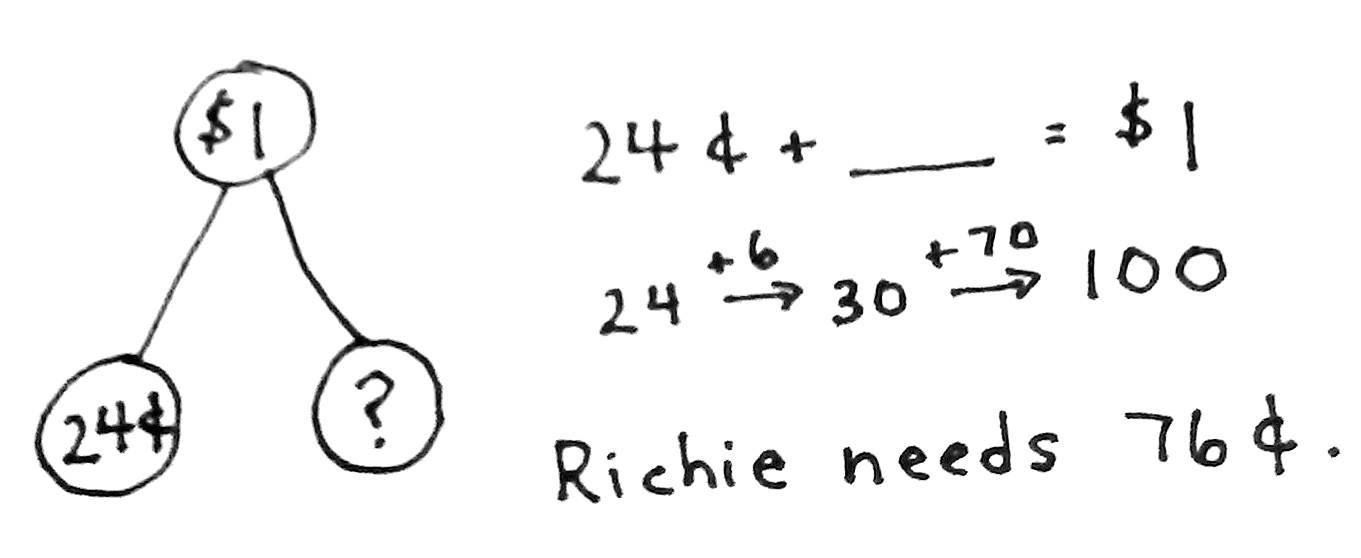 $1
24¢
?
24¢ + ___ = $1
24 +6→ 30 +70→ 100
Richie needs 76¢.